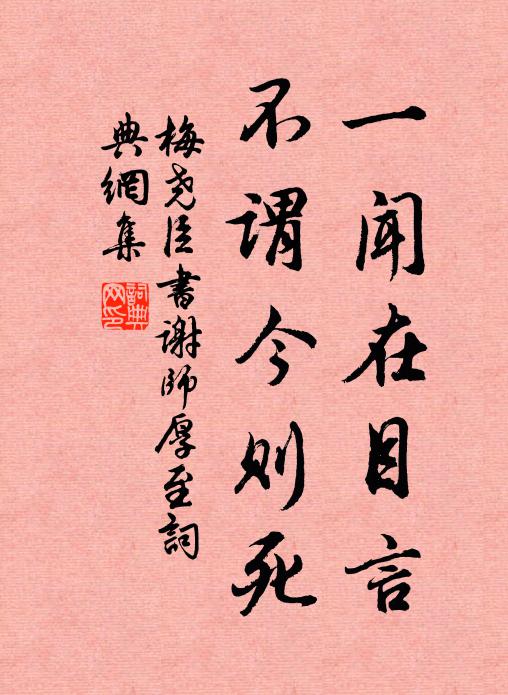 一闻在目言
不谓今则死
梅尧臣书谢师厚至词
典網集
詞典网印